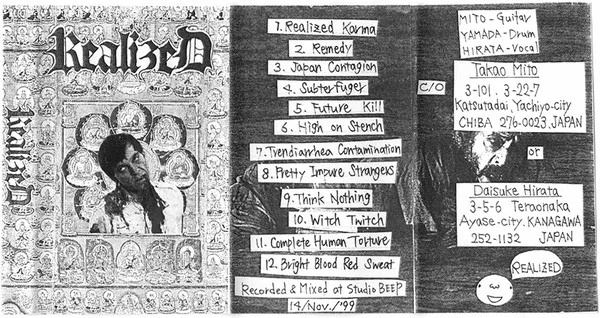 RealizeD
RealizeD
1. Realized Karma
2. Remedy
3. Japan Contagion
4. Subterfuger
5. Future Kill
6. High on Stench
7. Trendiarrhea Contamination
8. Pretty Impure Strangers
9. Think Nothing
10. Witch Twitch
11. Complete Human Torture
12. Bright Blood Red Sweat
Recorded & Mixed at Studio BEEP
14/Nov./'99
MITO-Guitar
YAMADA-Drum
HIRATA-Vocal
C/O
Takao Mito
3-101. 3-22-7
Katsutadai, Yachiyo-city
CHIBA 276-0023, JAPAN
or
Daisuke Hirata
3-5-6 Teraonaka
Ayase-city. KANAGAWA
252-1132 JAPAN
REALIZED